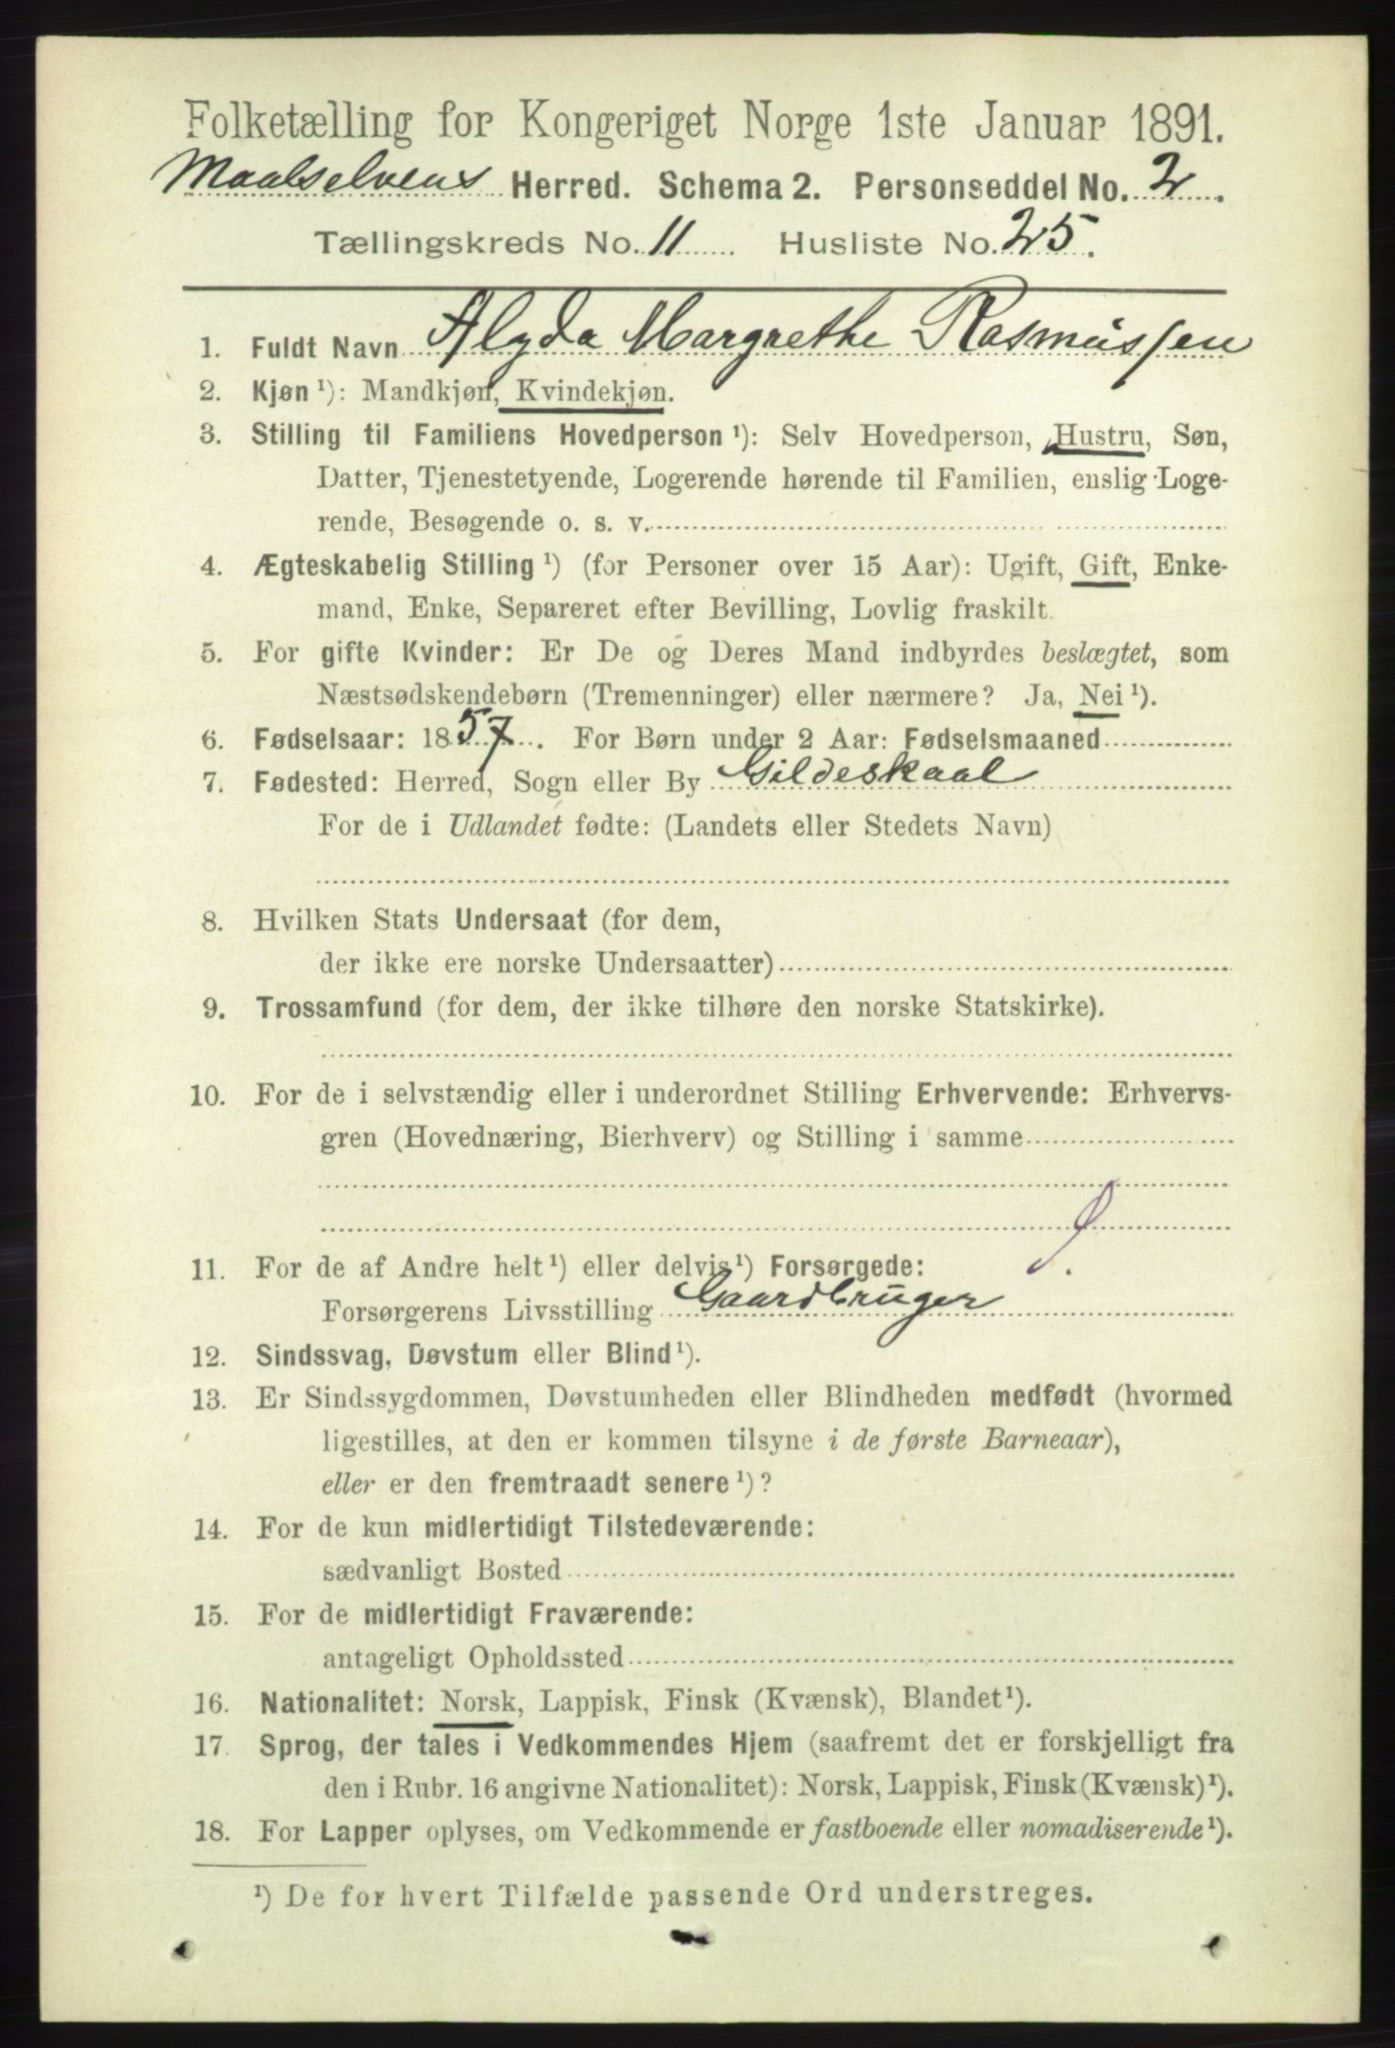 Folketælling for Kongeriget Norge 1ste Januar 1891.
Maalselvens Herred. Schema 2. Personseddel No. 2.
Tællingskreds No. 11 Husliste No. 25.
1. Fuldt Navn Alyda Margrethe Rasmussen
2. Kjøn ¹): Mandkjøn, Kvindekjøn.
3. Stilling til Familiens Hovedperson ¹): Selv Hovedperson, Hustru, Søn,
Datter, Tjenestetyende, Logerende hørende til Familien, enslig Loge-
rende, Besøgende o. s. v.
4. Ægteskabelig Stilling ¹) (for Personer over 15 Aar): Ugift, Gift, Enke-
mand, Enke, Separeret efter Bevilling, Lovlig fraskilt.
5. For gifte Kvinder: Er De og Deres Mand indbyrdes beslægtet, som
Næstsødskendebørn (Tremenninger) eller nærmere? Ja, Nei ¹).
6. Fødselsaar: 1857. For Børn under 2 Aar: Fødselsmaaned
7. Fødested: Herred, Sogn eller By Gildeskaal
For de i Udlandet fødte: (Landets eller Stedets Navn)
8. Hvilken Stats Undersaat (for dem,
der ikke ere norske Undersaatter)
9. Trossamfund (for dem, der ikke tilhøre den norske Statskirke).
10. For de i selvstændig eller i underordnet Stilling Erhvervende: Erhvervs-
gren (Hovednæring, Bierhverv) og Stilling i samme
11. For de af Andre helt ¹) eller delvis ¹) Forsørgede:
Forsørgerens Livsstilling Gaardbruger
12. Sindssvag, Døvstum eller Blind ¹).
13. Er Sindssygdommen, Døvstumheden eller Blindheden medfødt (hvormed
ligestilles, at den er kommen tilsyne i de første Barneaar),
eller er den fremtraadt senere ¹)?
14. For de kun midlertidigt Tilstedeværende:
sædvanligt Bosted
15. For de midlertidigt Fraværende:
antageligt Opholdssted
16. Nationalitet: Norsk, Lappisk, Finsk (Kvænsk), Blandet ¹).
17. Sprog, der tales i Vedkommendes Hjem (saafremt det er forskjelligt fra
den i Rubr. 16 angivne Nationalitet): Norsk, Lappisk, Finsk (Kvænsk) ¹).
18. For Lapper oplyses, om Vedkommende er fastboende eller nomadiserende ¹).
¹) De for hvert Tilfælde passende Ord understreges.